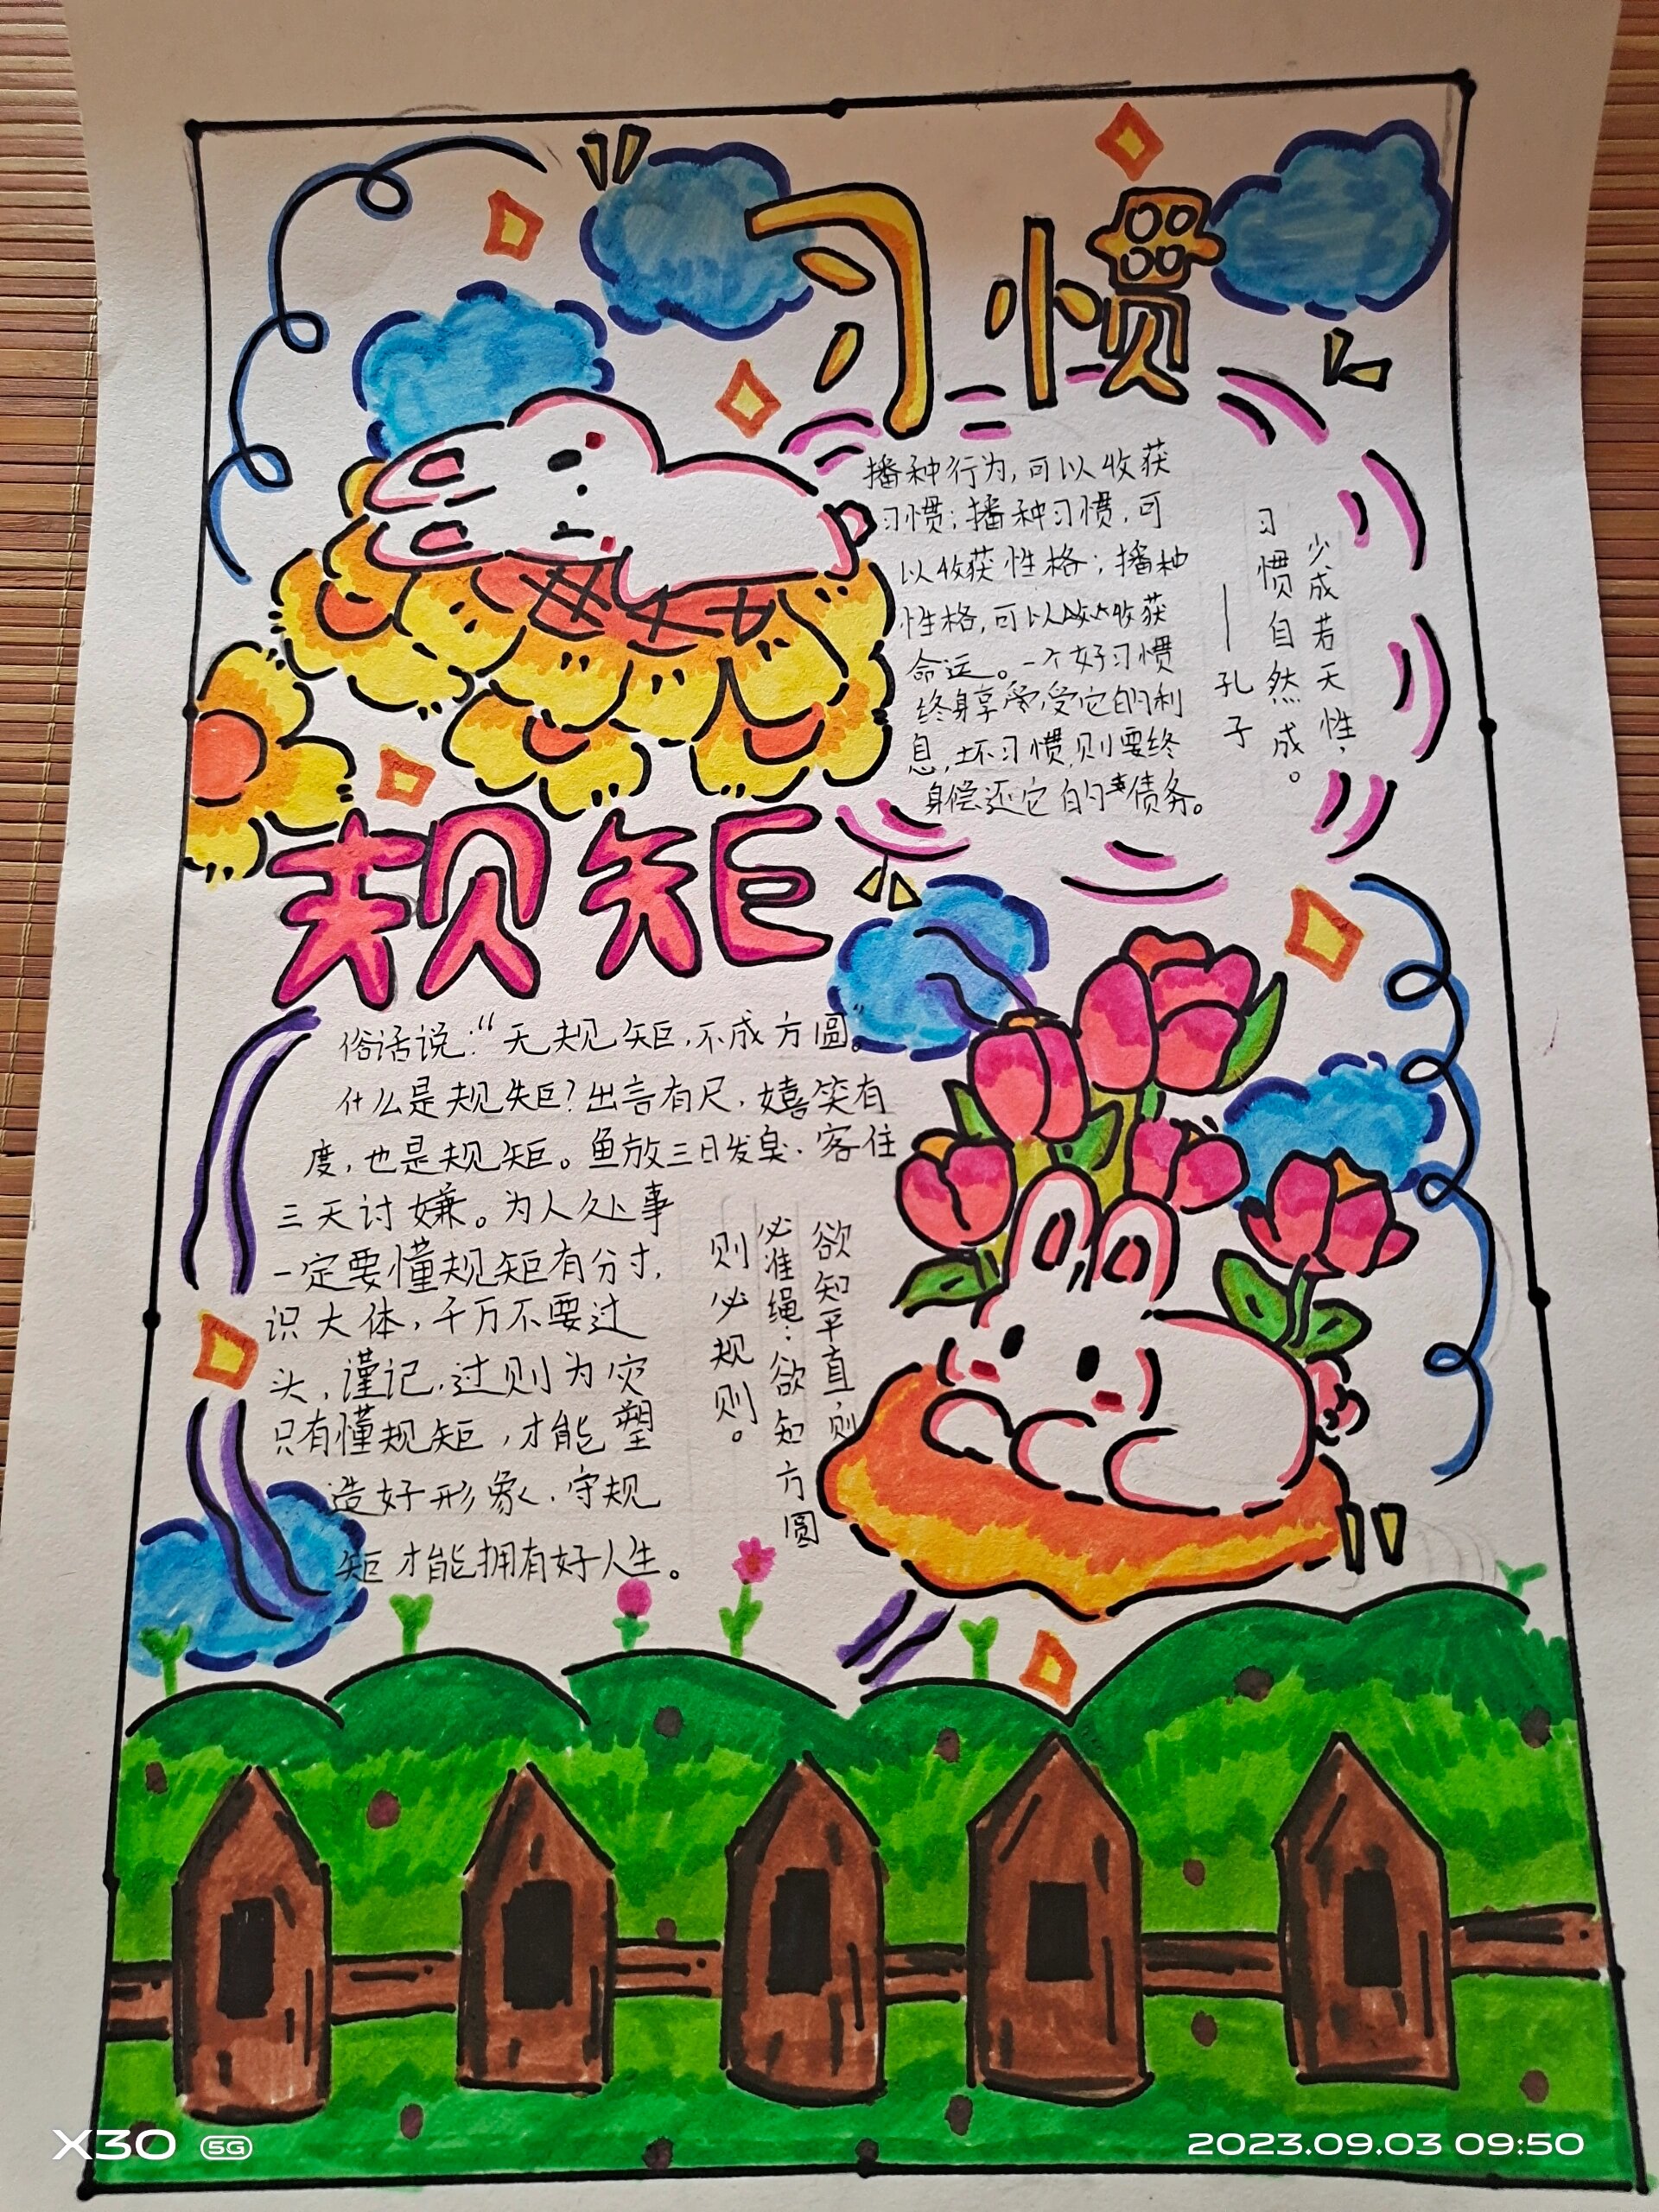 习惯
播种行为,可以收获
习惯;播种习惯,可
以收获性格;播种
性格,可以收获
命运。一个好习惯
终身享受它的利
息,坏习惯,则要终
身偿还它的债务。
少成若天性,
习惯自然成。
——孔子
规矩
俗话说:“无规矩,不成方圆”。
什么是规矩?出言有尺,嬉笑有
度,也是规矩。鱼放三日发臭,客住
三天讨嫌。为人处事
一定要懂规矩有分寸,
识大体,千万不要过
头,谨记,过则为灾
只有懂规矩,才能塑
造好形象,守规
矩才能拥有好人生。
欲知平直,则
必准绳;欲知方圆
则必规则。
X30 5G
2023.09.03 09:50